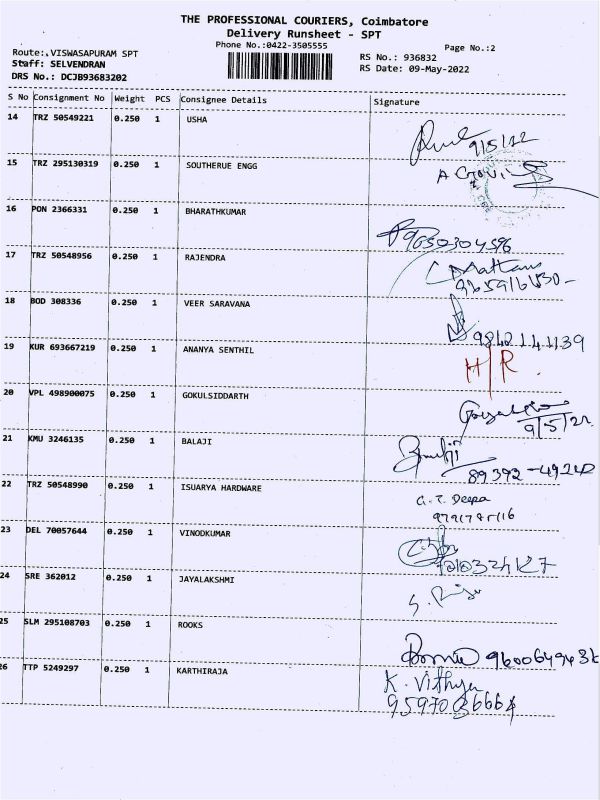 THE PROFESSIONAL COURIERS, Coimbatore
Delivery Runsheet - SPT
Phone No.:0422-3505555
Page No.:2
Route:.VISWASAPURAM SPT
RS No.: 936832
Staff: SELVENDRAN
RS Date: 09-May-2022
DRS No.: DCJB93683202
S No Consignment No Weight PCS Consignee Details Signature
14 TRZ 50549221 0.250 1 USHA
9/5/22
15 TRZ 295130319 0.250 1 SOUTHERUE ENGG
16 PON 2366331 0.250 1 BHARATHKUMAR
9650304596
17 TRZ 50548956 0.250 1 RAJENDRA
18 BOD 308336 0.250 1 VEER SARAVANA
9842141139
19 KUR 693667219 0.250 1 ANANYA SENTHIL
H/R.
20 VPL 498900075 0.250 1 GOKULSIDDARTH
9/5/22
21 KMU 3246135 0.250 1 BALAJI
22 TRZ 50548990 0.250 1 ISUARYA HARDWARE
G. T. Deepa
23 DEL 70057644 0.250 1 VINODKUMAR
24 SRE 362012 0.250 1 JAYALAKSHMI
25 SLM 295108703 0.250 1 ROOKS
26 TTP 5249297 0.250 1 KARTHIRAJA
K. Vithya
9597036664